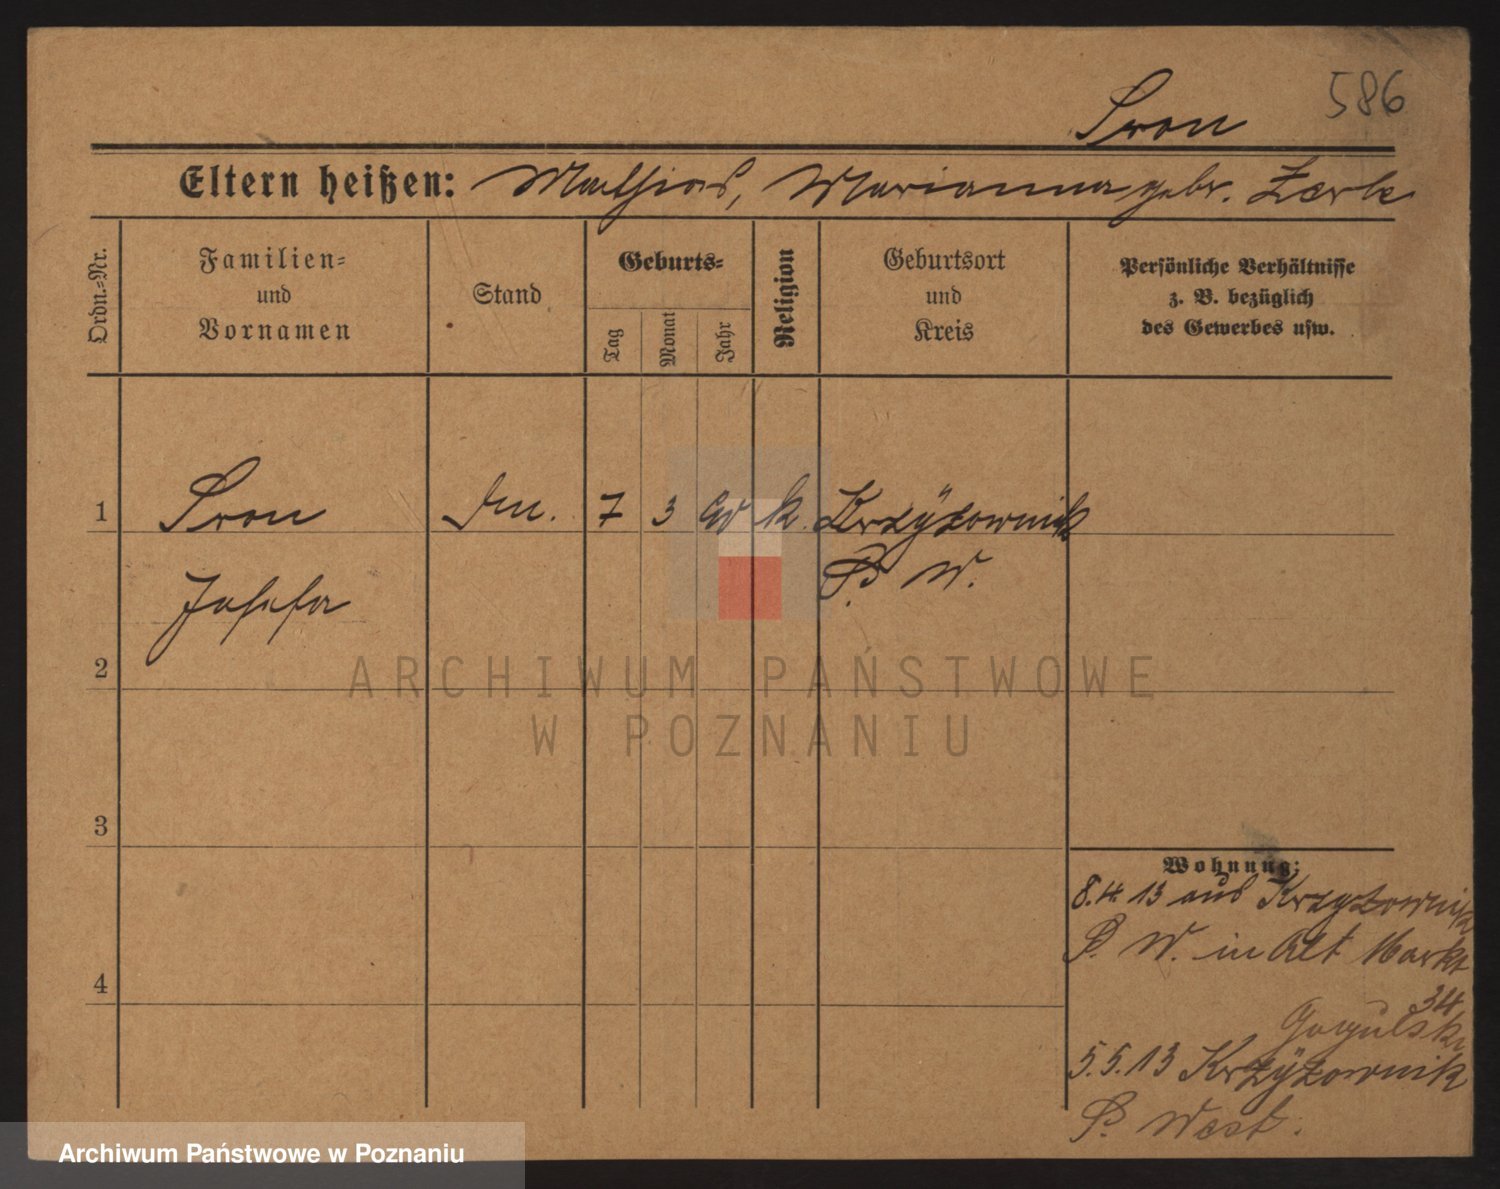 586
Sron
Eltern heißen: Mathias, Marianna gebr. Zerle
Ordn.-Nr.
Familien-
und
Vornamen
Stand
Geburts-
Tag
Monat
Jahr
Religion
Geburtsort
und
Kreis
Persönliche Verhältnisse
z. B. bezüglich
des Gewerbes usw.
1
Sron
7
3
k.
Krzÿzownik
P. W.
Josefa
2
ARCHIWUM PAŃSTWOWE
W POZNANIU
3
Wohnung:
8.4.13 aus Krzyzownik
P. W. in Alt Markt
34
4
5.5.13 Krzÿzownik
P. West.
Archiwum Państwowe w Poznaniu